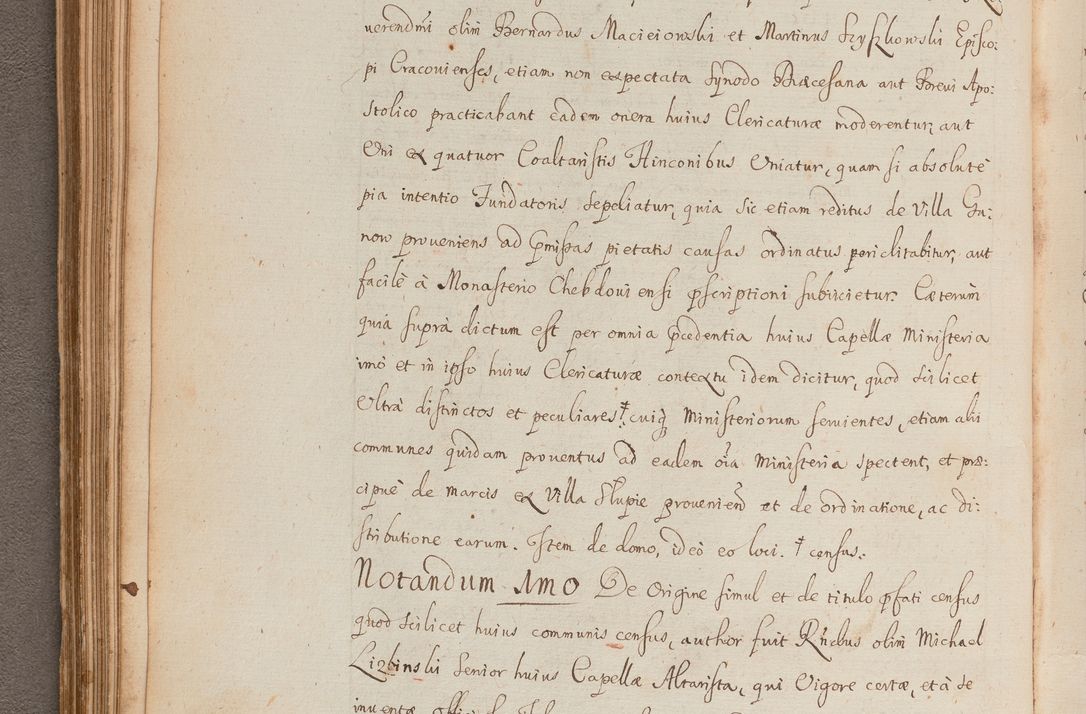 uerendmi olim Bernardus Macieiowski et Martinus Szyszkowski Episco:
pi Cracouienses, etiam non expectata Synodo Diæcesana aut Breui Apo:
stolico practicabant eadem onera huius Clericaturæ moderentur, aut
Vni ex quatuor Coaltaristis Hinconibus Vniatur, quam si absolutè
pia intentio Fundatoris sepeliatur, quia sic etiam reditus de Villa Gu:
now proueniens ad pmissas pietatis causas ordinatus periclitabitur, aut
facilè à Monasterio Chebdouiensi pscriptioni subijcietur. Cæterùm
quia suprà dictum est per omnia pcedentia huius Capellæ Ministeria
imò et in ipso huius Clericaturæ contextu idem dicitur, quod scilicet
Vltrà distinctos et peculiares cuiq Ministeriorum seruientes, etiam alii
communes quidam prouentus ad eadem oia Ministeria spectent, et præ:
cipuè de marcis ex Villa Slupie prouenien et de ordinatione, ac di:
stributione earum. Item de domo, ideò eo loci. † census.
Notandum 1mo De Origine simul et de titulo pfati census
quod scilicet huius communis census, author fuit Rndus olim Michael
Lizbinski Senior huius Capellæ Altarista, qui Vigore certæ, et à se
inuentæ